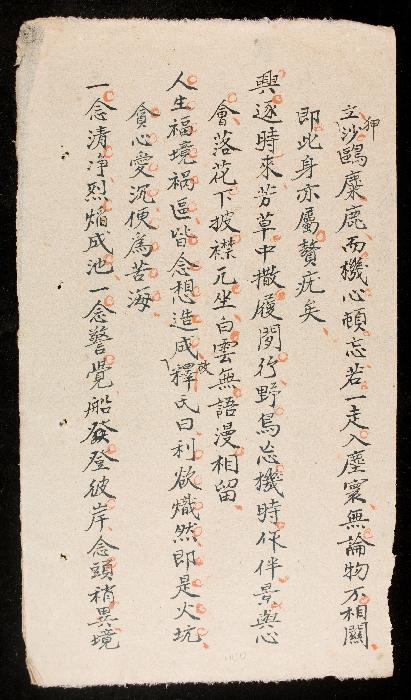 立狎沙鷗麋鹿而機心頓忘若一走入塵寰無論物不相關
即此身亦屬贅疣矣
興逐時來芳草中撒履閒行野鳥忘機時作伴景與心
會落花下披襟兀坐白雲無語漫相留
人生福境祸區皆念想造成故釋氏曰利欲熾然即是火坑
貪心愛沉便為苦海
一念清净烈焰成池一念警覺船發登彼岸念頭稍異境